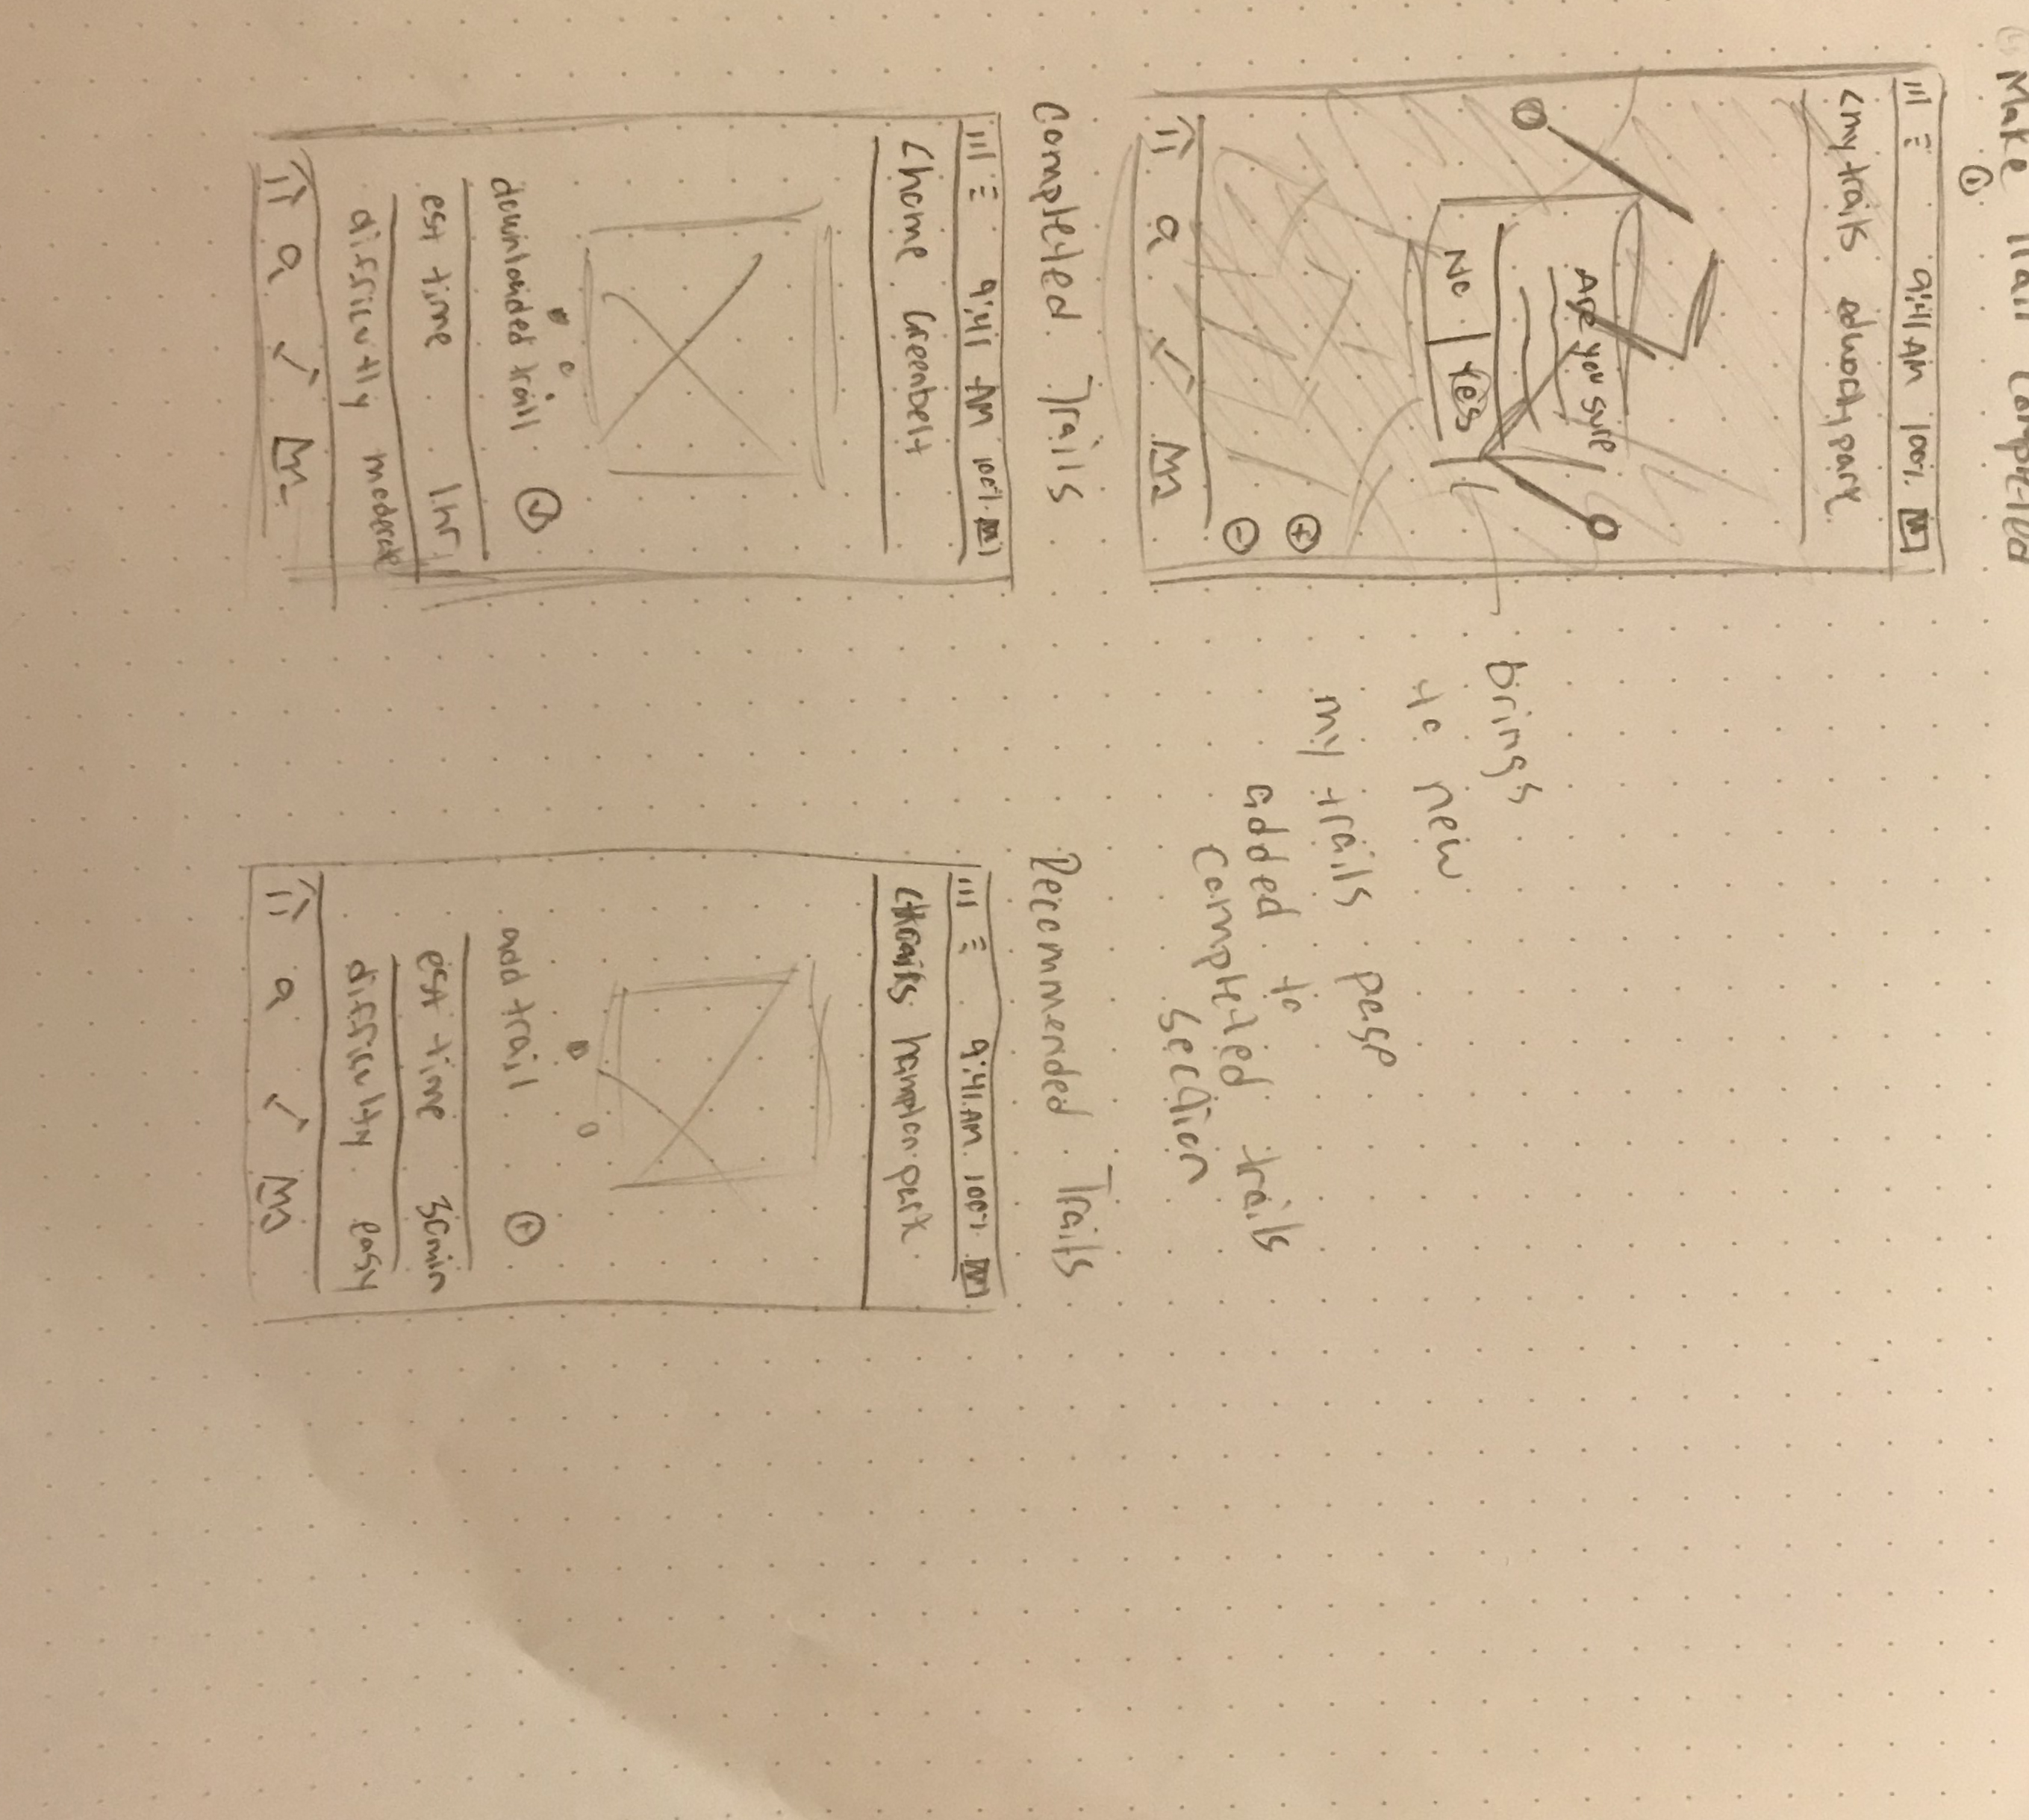 Make Trail Completed
1
9:41 AM 100%
<my trails adwach park
Are you sure
No Yes
+
-
brings
to new
my trails page
added to
completed trails
section
Completed Trails
9:41 AM 100%
<home Greenbelt
downloaded traill
est time 1hr
difficutly moderate
Recommended Trails
9:41 AM 100%
hampton park
add trail +
est time 30min
difficulty easy